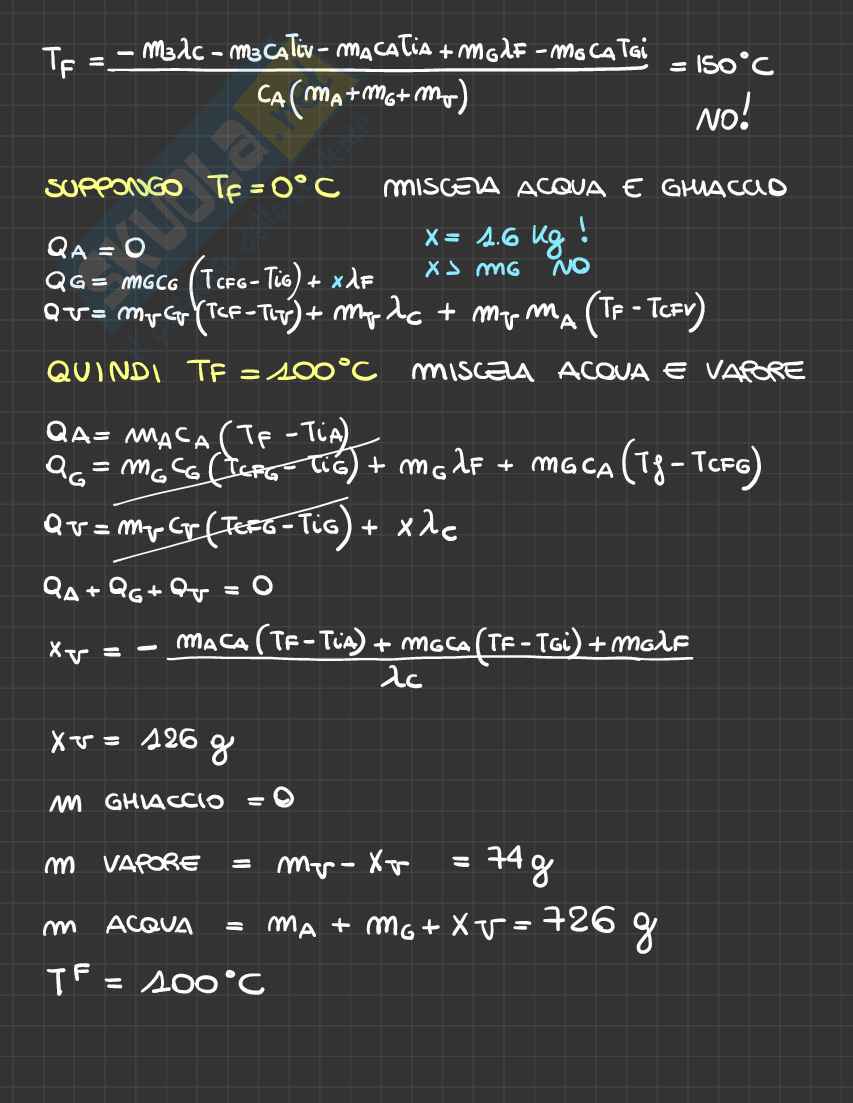 T_F = (- m₃λc - m₃cATiv - mAcATiA + mGλF - mGcATGi) / (cA(mA+mG+mv)) = 150°C
NO!
SUPPONGO TF = 0°C MISCELA ACQUA E GHIACCIO
QA = 0
x = 1.6 Kg !
QG = mGcG (TCFG - TiG) + xλF
x > mG NO
Qv = mvcv (TCF - Tiv) + mvλc + mv mA (TF - TCFV)
QUINDI TF = 100°C MISCELA ACQUA E VAPORE
QA = mAcA (TF - TiA)
QG = mGcG (TCFG - TiG) + mGλF + mGcA (Tf - TCFG)
Qv = mvcv (TCFG - TiG) + xλc
QA + QG + Qv = 0
xv = - (mAcA (TF - TiA) + mGcA (TF - TGi) + mGλF) / λc
xv = 126 g
m GHIACCIO = 0
m VAPORE = mv - xv = 74 g
m ACQUA = mA + mG + xv = 726 g
T^F = 100°C
SKUOLA.net